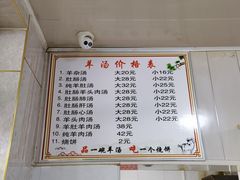 羊汤价格表
1. 羊杂汤 大20元 小16元
2. 肚肠汤 大28元 小22元
3. 纯羊肚汤 大35元 小25元
4. 肚肠羊头肉汤 大28元 小22元
5. 肚肠肺汤 大28元 小22元
6. 肚肠肝汤 大28元 小22元
7. 肚肠心汤 大28元 小22元
8. 羊头肉汤 大28元 小22元
9. 羊肚羊肉汤 38元
10. 纯羊肉汤 42元
11. 烧饼 2元
品一碗羊汤 吃一个烧饼